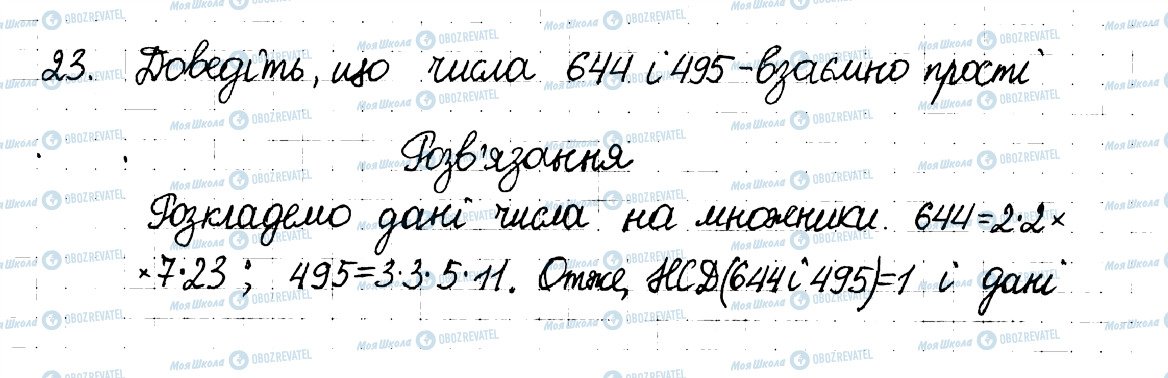 23. Доведіть, що числа 644 і 495 - взаємно прості
Розв'язання
Розкладемо дані числа на множники. 644=2·2×
×7·23; 495=3·3·5·11. Отже, НСД(644 і 495)=1 і дані